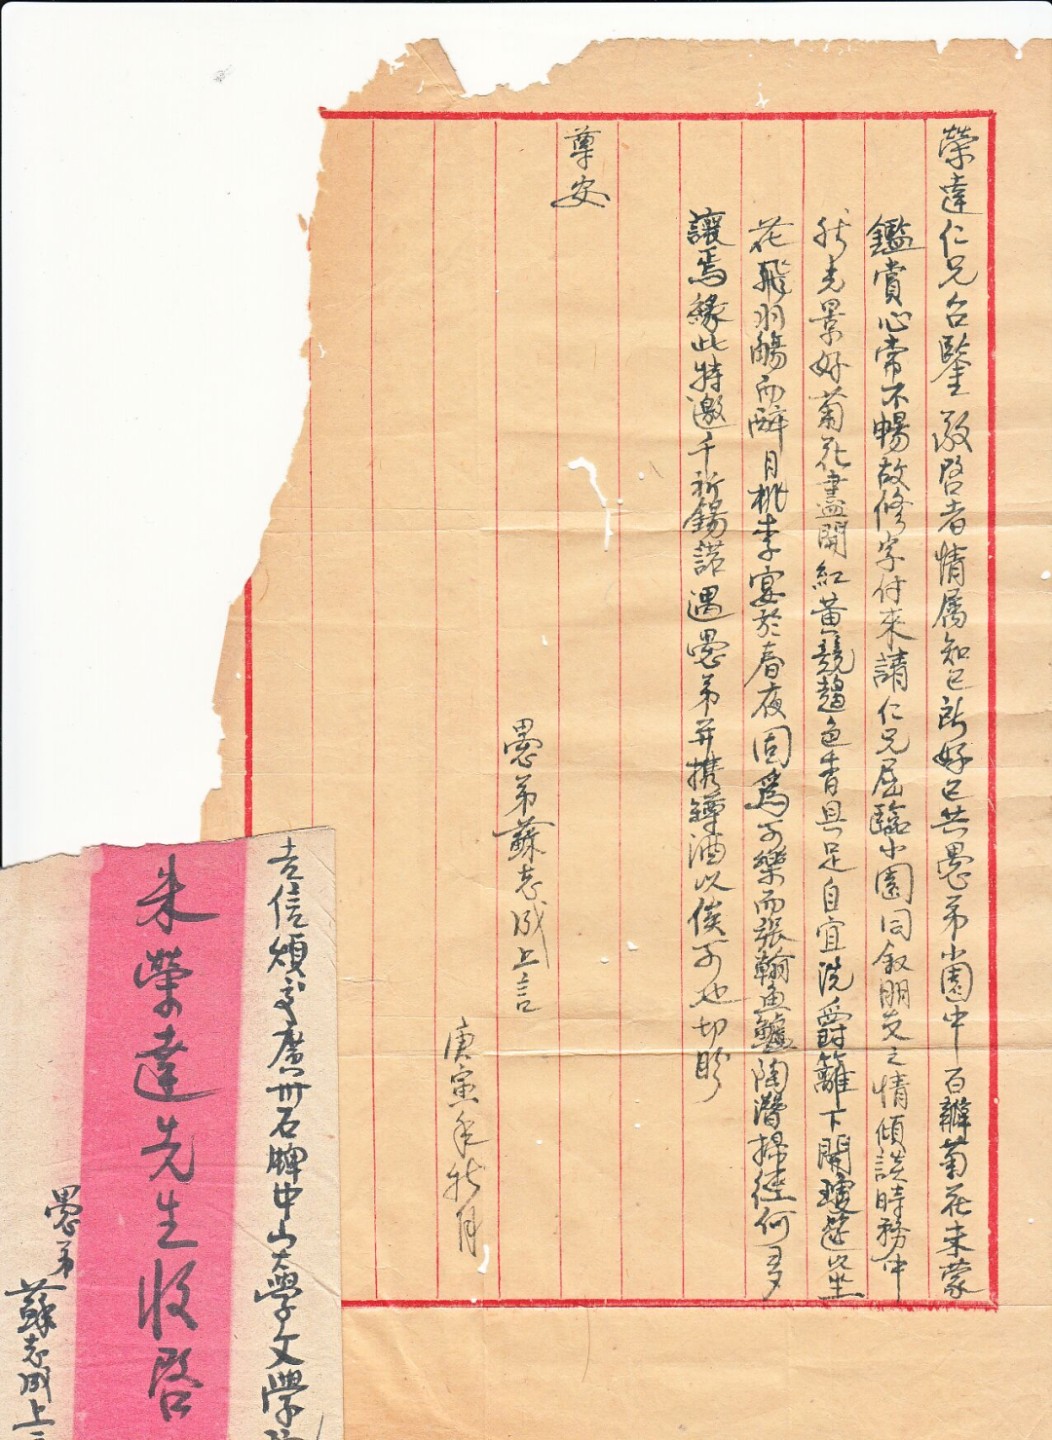 榮達仁兄台鑒 敬啓者情屬知己所好已共愚弟小園中百辦菊花未蒙
鑑賞心常不暢故修字付來請仁兄屈臨小園同敘朋友之情傾談時務中
秋光景好菊花盡開紅黃競艷色香具足自宜洗爵籬下開瓊筵以坐
花飛羽觴而醉月桃李宴於春夜固爲可樂而張翰魚鱸陶潛掃徑何多
讓焉緣此特邀千祈錫諾遇愚弟并携罇酒以俟可也切盼
尊安
愚弟蘇志成上言
庚寅年秋月
吉信煩交廣州石牌中山大學文學院
朱榮達先生收啓
愚弟
蘇志成上